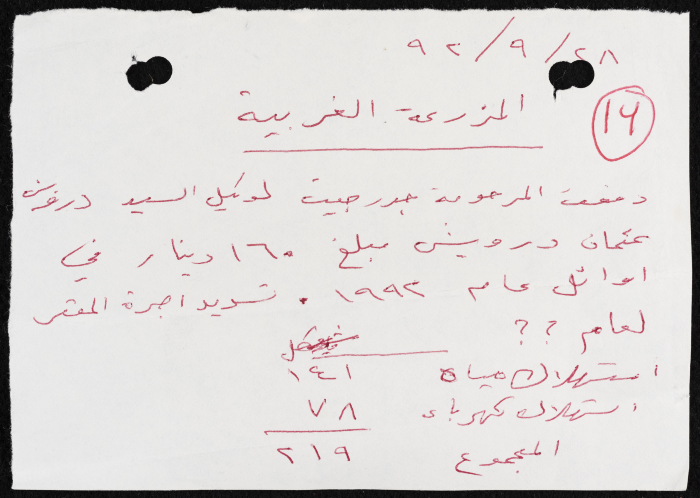 ٩٢/٩/٢٨
14
المزرعة الغربية
دفعت المرحومة جورجيت لوكيل السيد درويش
عثمان درويش مبلغ ١٦٠ دينار في
اوائل عام ١٩٩٢. تسديد اجرة المقر
لعام ؟؟
شيكل
استهلاك مياه ١٤١
استهلاك كهرباء ٧٨
المجموع ٢١٩